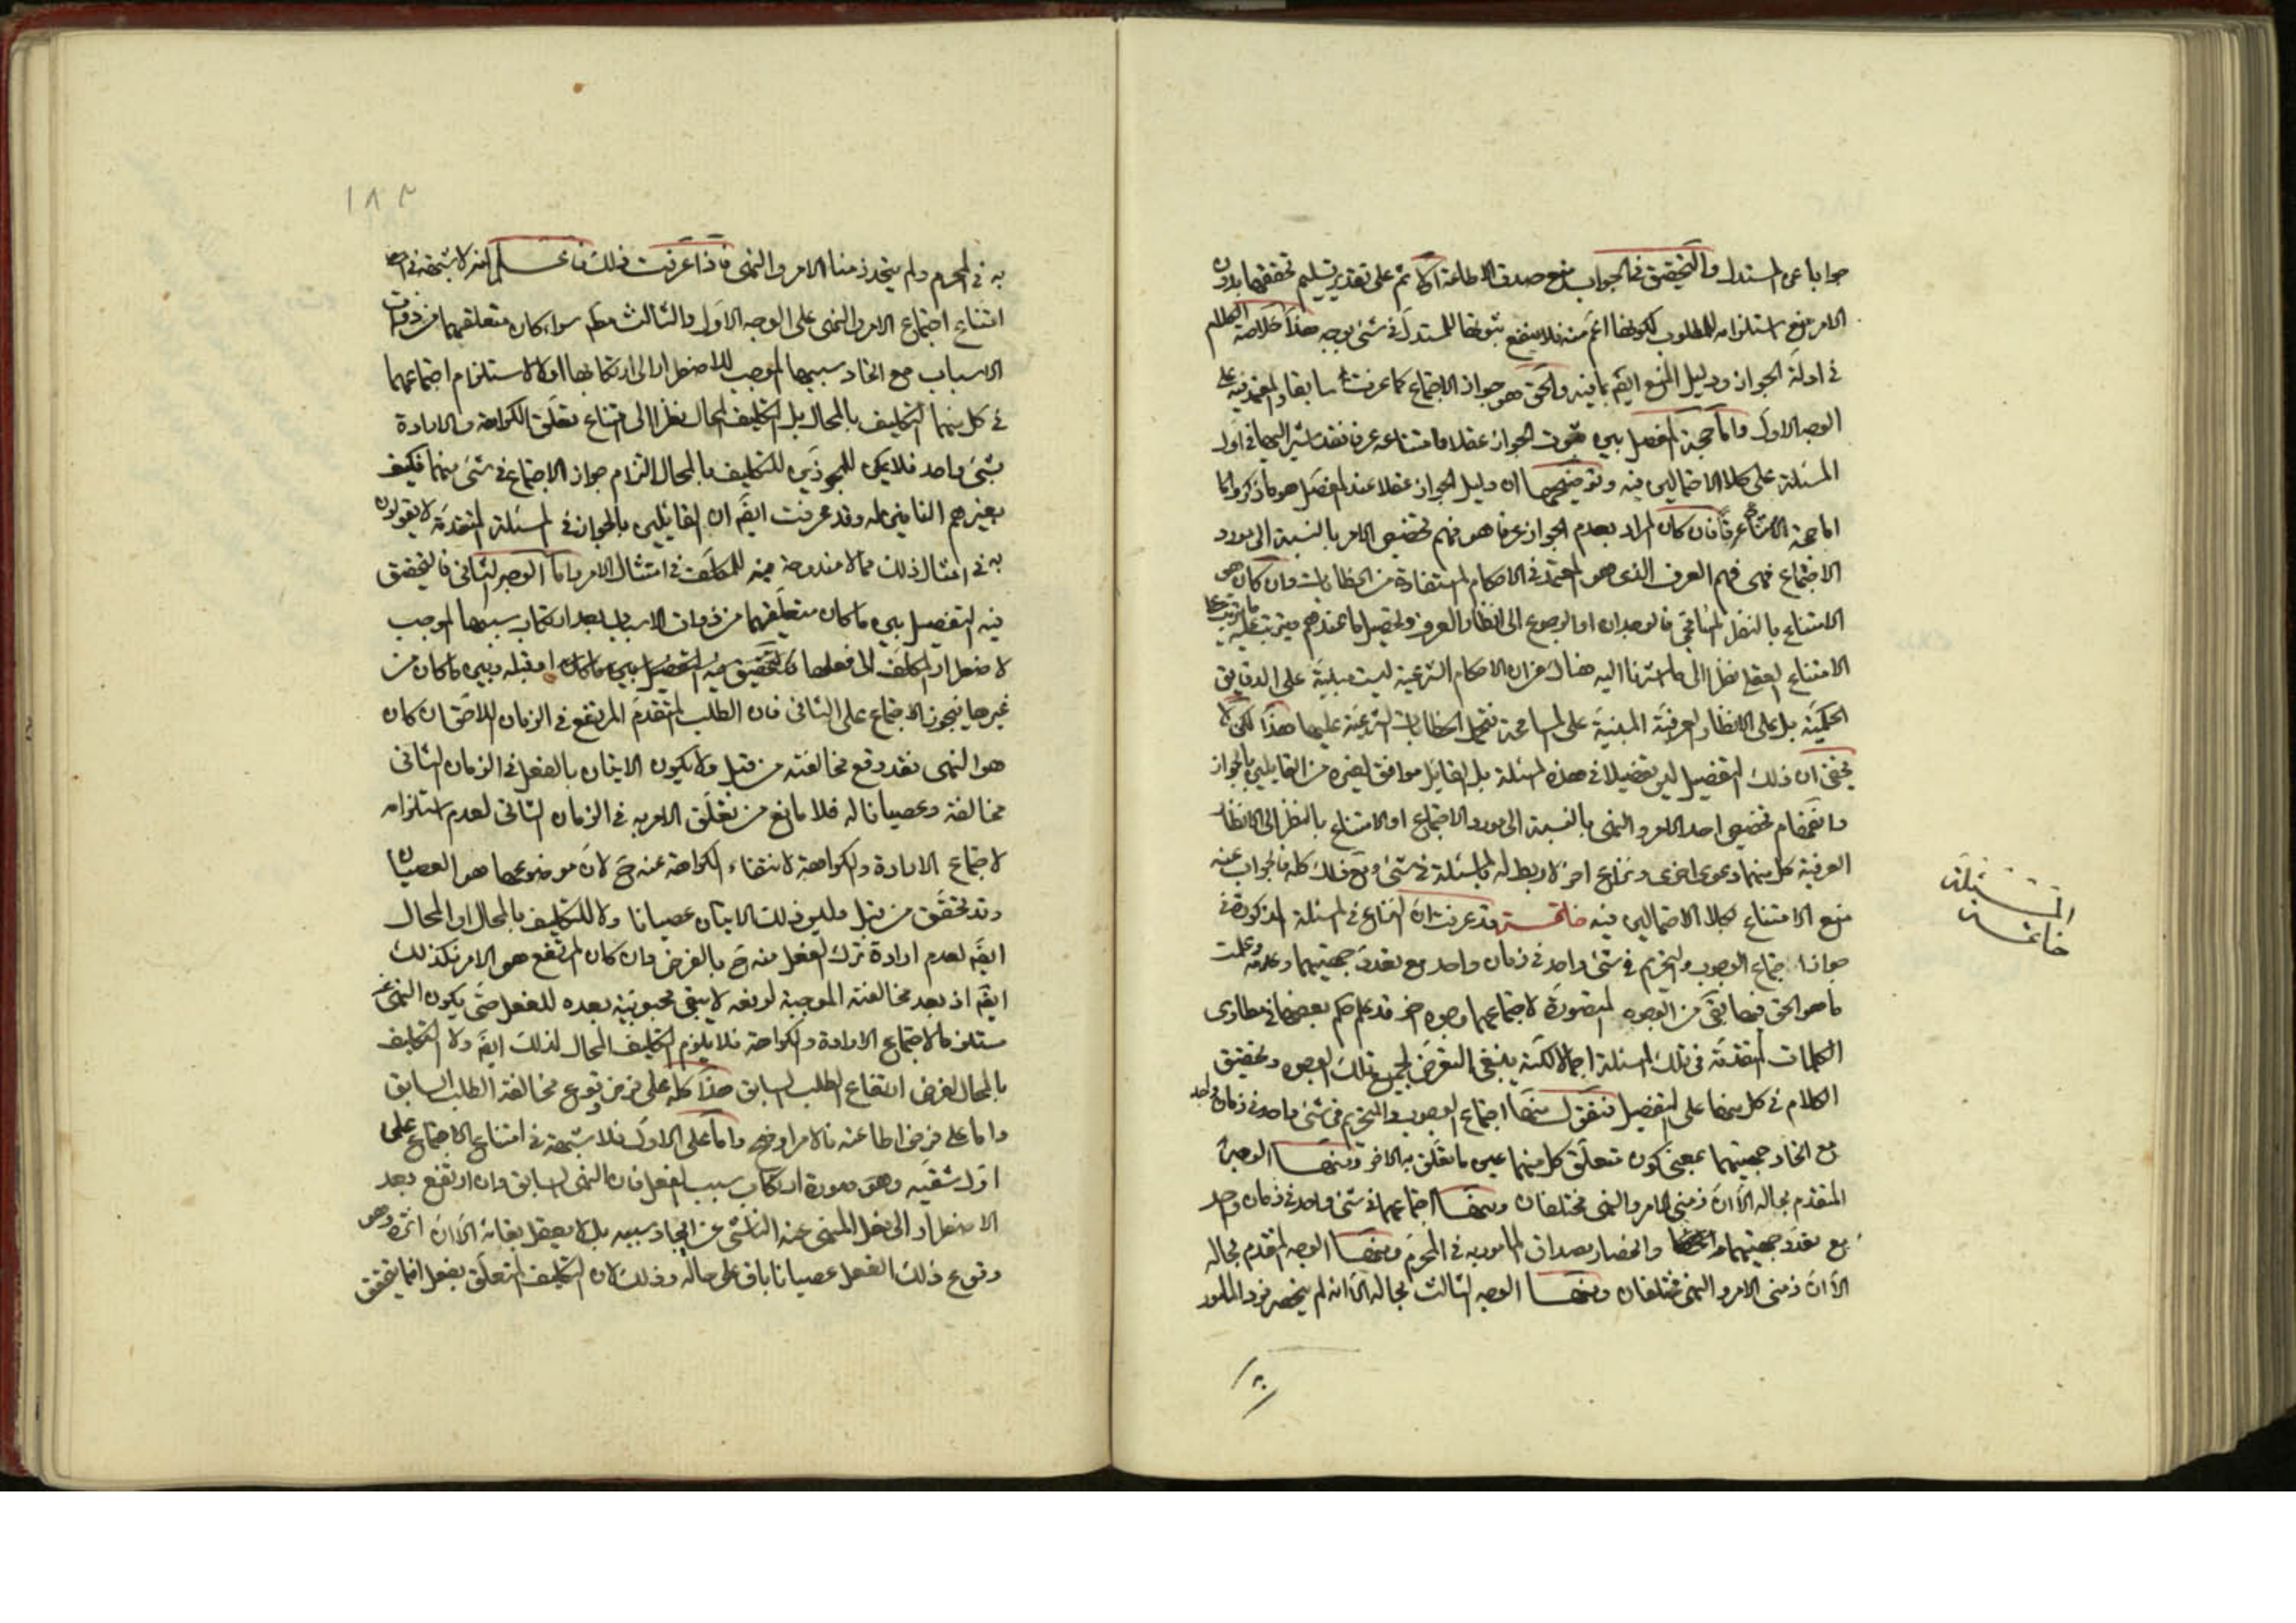 جوابا عن المستدل والتحقيق في الجواب منع صدق الاطاعة اولا ثم على تقدير تسليم تحققها بدون
الامر منع استلزامه للمطلوب لكونها اعم منه فلا ينفع ثبوتها للمستدل في شئ بوجه هذا خلاصة الكلام
في ادلة الجواز ودليل المنع ايضَ بما فيه والحق هو جواز الاجتماع كما عرفت سابقا والمعتمد فيه على
الوجه الاول واما حجة المفصل بين ثبوت الجواز عقلا وامتناعه عرفا فقد اشير اليها في اول
المسئلة على كلا الاحتمالين فيه وتوضيحها ان دليل الجواز عقلا عند المفصل هو ما ذكروا واما
اما حجة الامتناع عرفا فان كان المراد بعدم الجواز عرفا هو فهم تخصيص الامر بالنسبة الى مورد
الاجتماع فهى فهم العرف الذى هو المعتمد في الاحكام المستفادة من الخطابات وان كان هو
الامتناع بالنظر المسامحى فالوجدان او الرجوع الى انظار العرف وتحصيل ما عندهم
الامتناع العقلى نظرا الى ما اشرنا اليه هناك من ان الاحكام الشرعية ليست مبنية على الدقايق
الحكمية بل على الانظار العرفية المبنية على المسامحة فتحمل الخطابات الشرعية عليها هذا لكن لا
يخفى ان ذلك التفصيل ليس تفصيلا في هذه المسئلة بل القائل موافق لغيره من القايلين بالجواز
وانضمام تخصيص احد الامر والنهى بالنسبة الى مورد الاجتماع او الامتناع بالنظر الى الانظار
العرفية كل منهما دعوى اخرى ونزاع اخر لا ربط له بالمسئلة في شئ ومع ذلك كله فالجواب عنه
منع الامتناع بكلا الاحتمالين فيه خاتمة قد عرفت ان النزاع في المسئلة المذكورة في
جواز اجتماع الوجوب والتحريم في شئ واحد في زمان واحد مع تعدد جهتيهما وعدمه وعلمت
ما هو الحق فيها بقى من الوجوه المتصورة لاجتماعهما وجوه اخر قد علم حكم بعضها في مطاوى
الكلمات المتقدمة في تلك المسئلة اجمالا لكنه ينبغى التعرض لجميع تلك الوجوه وتحقيق
الكلام في كل منها على التفصيل فنقول منها اجتماع الوجوب والتحريم في شئ واحد في زمان واحد
مع اتحاد جهتيهما بمعنى كون متعلق كل منهما عين ما تعلق به الاخر ومنها الوجه
المتقدم بحاله الا ان زمنى الامر والنهى مختلفان ومنها اجتماعهما في شئ واحد في زمان واحد
مع تعدد جهتيهما وانحصار مصداق المامور به في المحرم ومنها الوجه المتقدم بحاله
الا ان زمنى الامر والنهى مختلفان ومنها الوجه الثالث بحاله الا انه لم ينحصر فرد المامور
المسئلة
خاتمة
١٨٢
به في المحرم ولم يتحد زمنا الامر والنهى فاذا عرفت ذلك فاعلم انه لا شبهة في
امتناع اجتماع الامر والنهى على الوجه الاول والثالث مطَ سواء كان متعلقهما من ذوات
الاسباب مع اتحاد سببها الموجب للاضطرار الى ارتكابها اولا لاستلزام اجتماعهما
في كل منهما التكليف بالمحال بل التكليف المحال نظرا الى امتناع تعلق الكراهة والارادة
بشئ واحد فلا يمكن للمجوزين للتكليف بالمحال التزام جواز الاجتماع في شئ منهما فكيف
بغيرهم النافين له وقد عرفت ايضَ ان القائلين بالجواز في المسئلة المتقدمة لا يقولون
به في امثال ذلك مما لا مندوحة فيه للمكلف في امتثال الامر واما الوجه الثانى فالتحقيق
فيه التفصيل بين ما كان متعلقهما من ذوات الاسباب بعد ارتكاب سببها الموجب
لاضطرار المكلف الى فعلها او قبله وبين ما كان من
غيرها فيجوز الاجتماع على الثانى فان الطلب المتقدم المرتفع في الزمان اللاحق ان كان
هو النهى فقد وقع مخالفته من قبل ولا يكون الاتيان بالفعل في الزمان الثانى
مخالفة وعصيانا له فلا مانع من تعلق الامر به في الزمان الثانى لعدم استلزامه
لاجتماع الارادة والكراهة لانتفاء الكراهة عنه حَ لان موضوعها هو العصيان
وقد تحقق من قبل وليس ذلك الاتيان عصيانا ولا للتكليف بالمحال او المحال
ايضَ لعدم ارادة ترك الفعل منه حَ بالفرض وان كان المرتفع هو الامر فكذلك
ايضَ اذ بعد مخالفته الموجبة لرفعه لا يبقى محبوبية بعده للفعل حتى يكون النهى عنه
مستلزما لاجتماع الارادة والكراهة فلا يلزم التكليف المحال لذلك ايضَ ولا التكليف
بالمحال لفرض ارتفاع الطلب السابق هذا كله على فرض وقوع مخالفة الطلب السابق
واما على فرض اطاعته فالامر اوضح واما على الاول فلا شبهة في امتناع الاجتماع على
اول شقيه وهو صورة ارتكاب سبب الفعل فان النهى السابق وان ارتفع بعد
الاضطرار الى فعل المنهى عنه الناشى عن ايجاد سببه بل لا يعقل بقائه الا ان اثره وهو
وقوع ذلك الفعل عصيانا باق على حاله وذلك لان التكليف المتعلق بفعل انما يتحقق